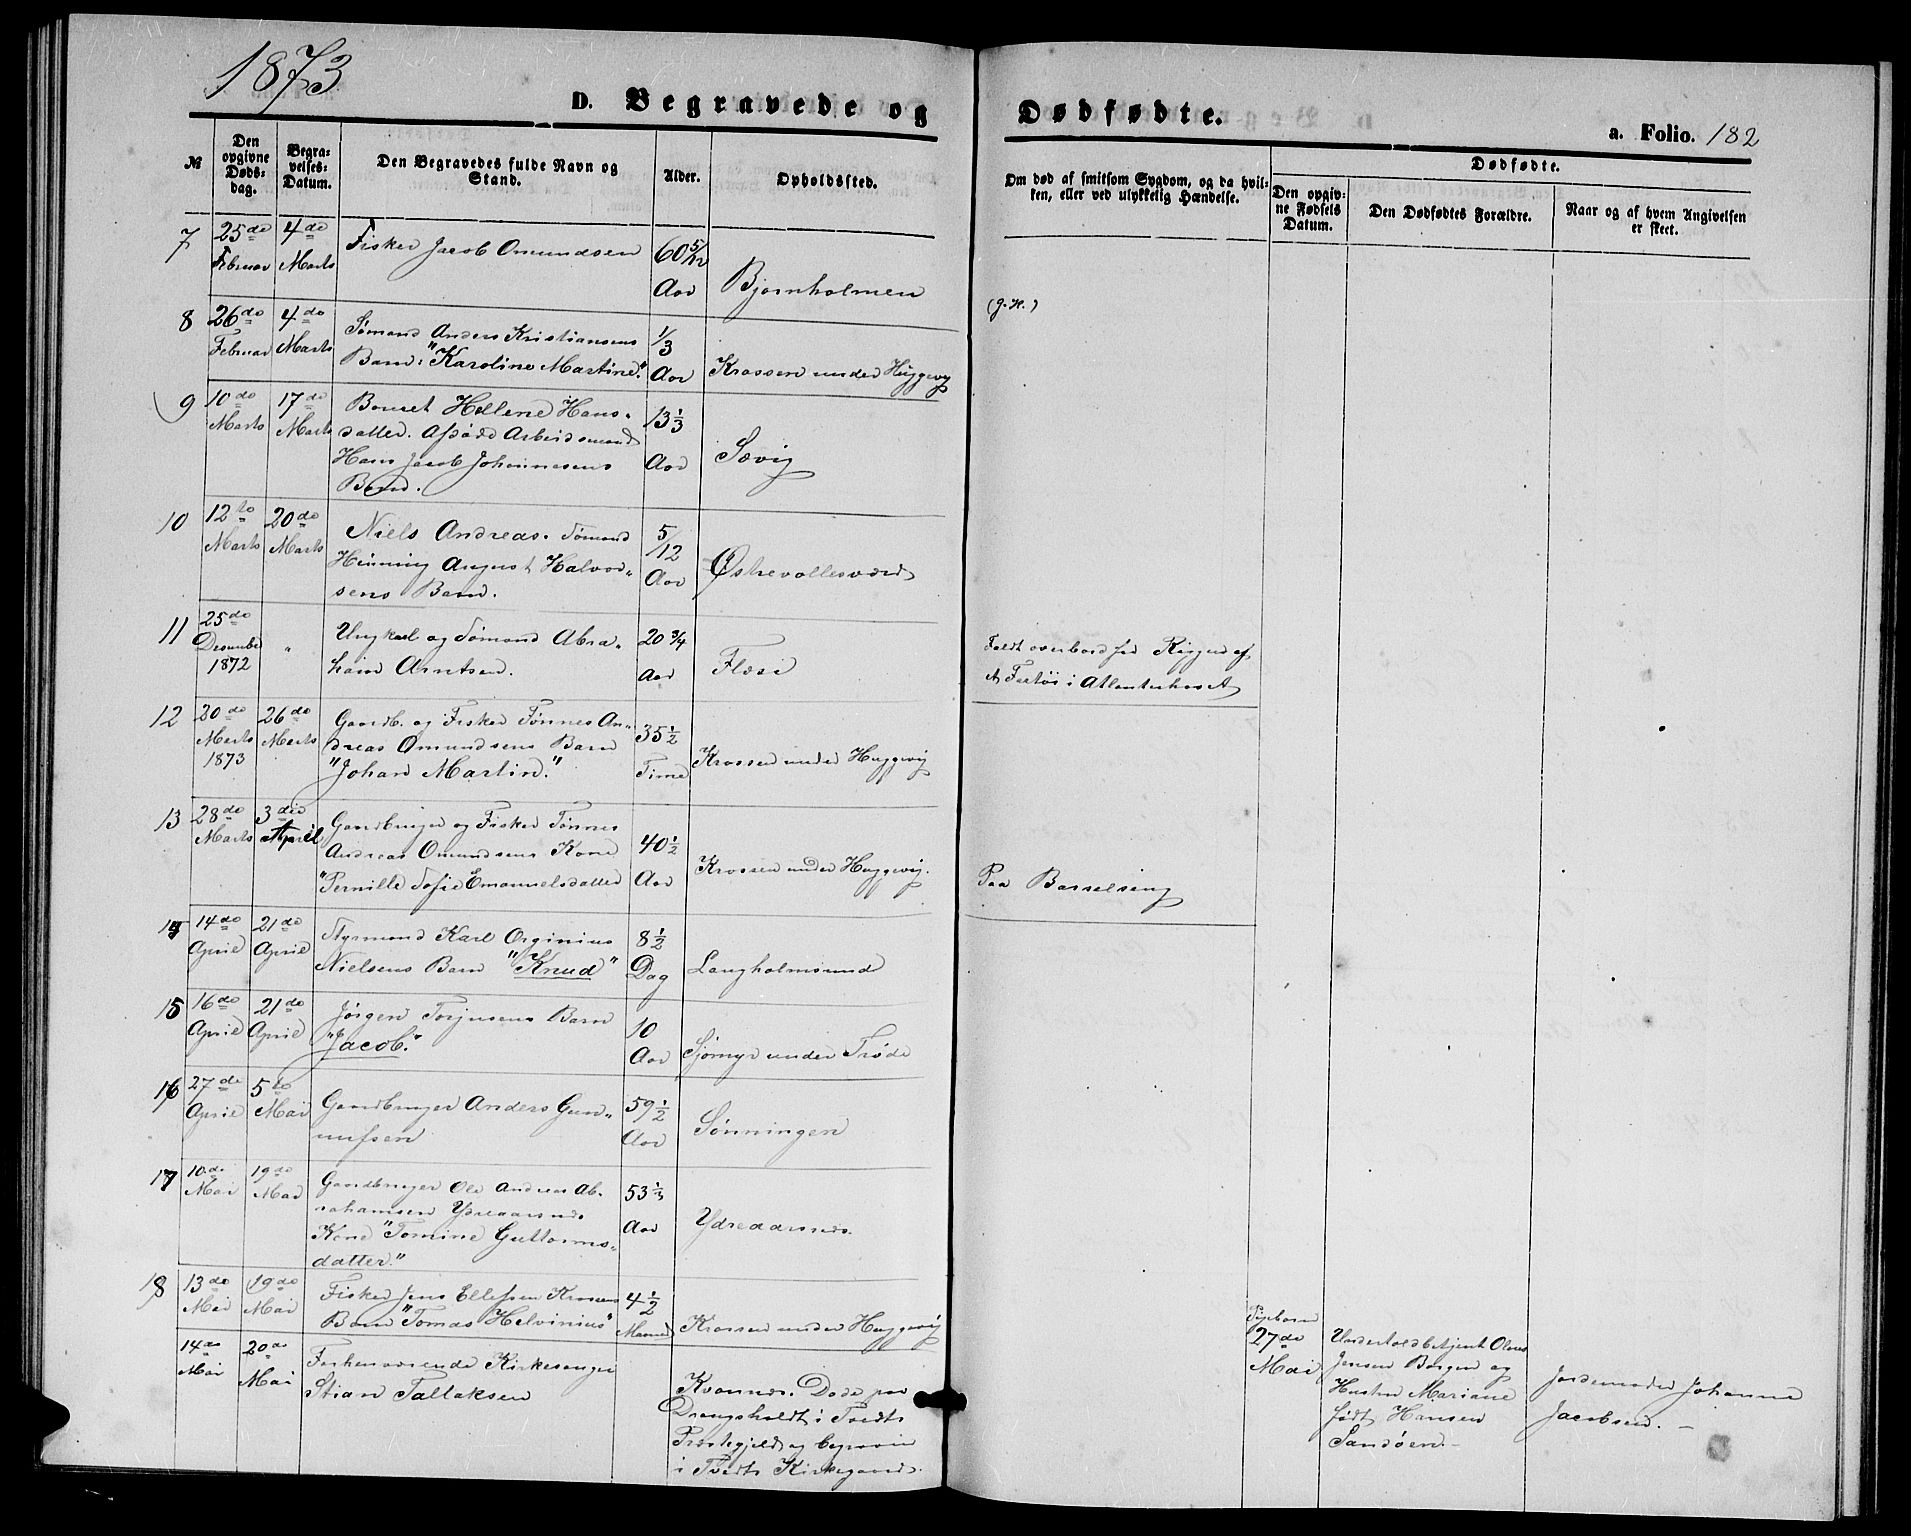 1873
D. Begravede og Dødfødte.
a. Folio. 182
№
Den opgivne Døds-dag.
Begra-velses-Datum.
Den Begravedes fulde Navn og Stand.
Alder.
Opholdssted.
Om død af smitsom Sygdom, og da hvil-
ken, eller ved ulykkelig Hændelse.
Dødfødte.
Den opgiv-ne Fødsels Datum.
Den Dødfødtes Forældre.
Naar og af hvem Angivelsen er skeet.
7
25de Februar
4de Marts
Fisker Jacob Omundsen
60 5/12 Aar
Bjornholmen
8
26de Februar
4de Marts
Sømand Anders Kristiansens
Barn: "Karoline Martine."
1/3 Aar
Krossen under Huggevig
(J. H.)
9
10de Marts
17de Marts
Hellene Hans-
datter. Afdøde Arbeidsmand
Hans Jacob Johannesens
Barn.
13 1/3 Aar
Sævig
10
12te Marts
20de Marts
Niels Andreas. Sømand
Henning August Halvor-
sens Barn.
5/12 Aar
Østrevollesværd
11
25de Desember 1872
"
Ungkarl og Sømand Abra-
ham Arntsen.
20 3/4 Aar
Flæsi
Faldt overbord fra Riggen af
et Fartøi i Atlanterhavet
12
20de Marts 1873
26de Marts
Gaardb. og Fisker Tønnes An-
dreas Omundsens Barn
"Johan Martin."
35 1/2 Time
Krossen under Huggevig
13
28de Marts
3die April
Gaardbruger og Fisker Tønnes
Andreas Omundsens Kone
"Pernille Sofie Emanuelsdatter
40 1/2 Aar
Krossen under Huggevig.
Paa Barselseng
14
14de April
21de April
Styrmand Karl Orginius
Nielsens Barn "Knud"
8 1/2 Dag
Langholmsunde
15
16de April
21de April
Jørgen Torjusens Barn
"Jacob."
10 Aar
Sjømyr under Trøde
16
27de April
5te Mai
Gaardbruger Anders Gun-
nufsen
59 1/2 Aar
Sønningen
17
10de Mai
19de Mai
Gaardbruger Ole Andreas Ab-
rahamsen Ydreaarsnes
Kone "Tomine Guttorms-
datter."
53 1/3 Aar
Ydreaarsnes.
18
13de Mai
19de Mai
Fisker Jens Ellefsen Krossens
Barn "Tomas Helvinius"
4 1/2 Maaned
Krossen under Huggevig
14de Mai
20de Mai
Forhenværende Kirkesanger
Stian Tallaksen
Kvannes. Døde paa
Drangsholdt i Tvedts
Præstegjeld og begraven
i Tvedts Kirkegaard.
27de Mai
Undertoldbetjent
Jensen Borgen og
Hustru Mariane
født Hansen
Sandøen.
Jordemoder Johanne
Jacobsen.